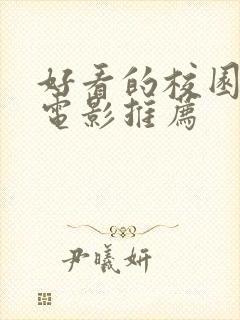 好看的校园
電影推薦
尹曦妍